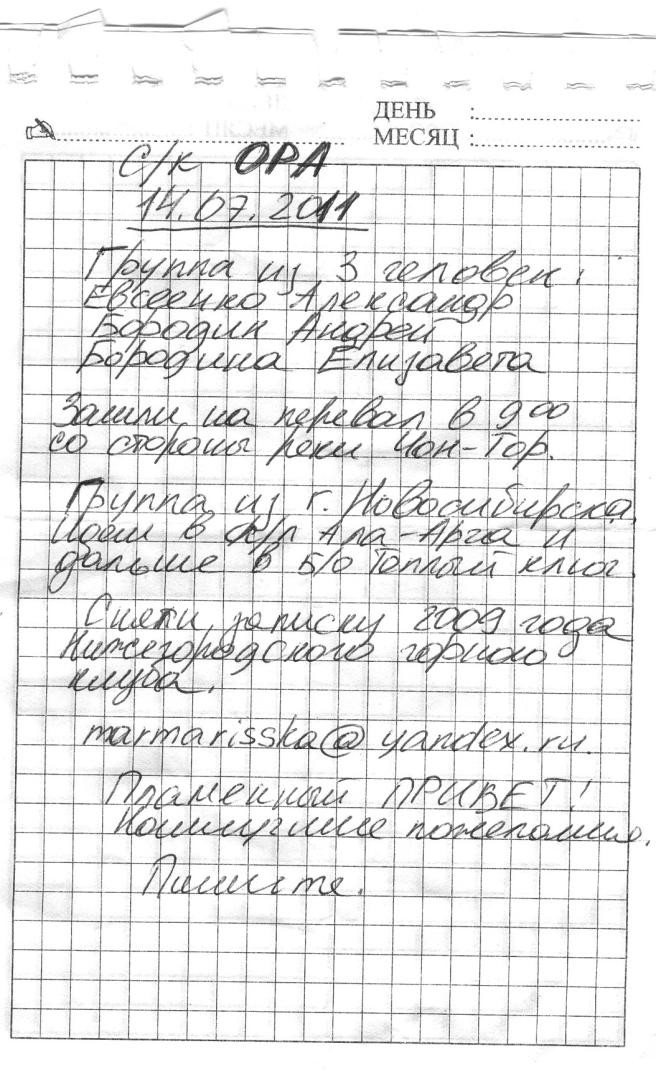 ДЕНЬ :
МЕСЯЦ :
с/к ОРА
14.07.2011
Группа из 3 человек:
Евсеенко Александр
Бородин Андрей
Бородина Елизавета
Зашли на перевал в 9 00
со стороны реки Чон-Тор.
Группа из г. Новосибирска.
Идем в а/л Ала-Арча и
дальше в б/о Теплый ключ.
Сняли записку 2009 года
Нижегородского горного
клуба.
marmarisska@yandex.ru.
Пламенный ПРИВЕТ!
Наилучшие пожелания.
Пишите.